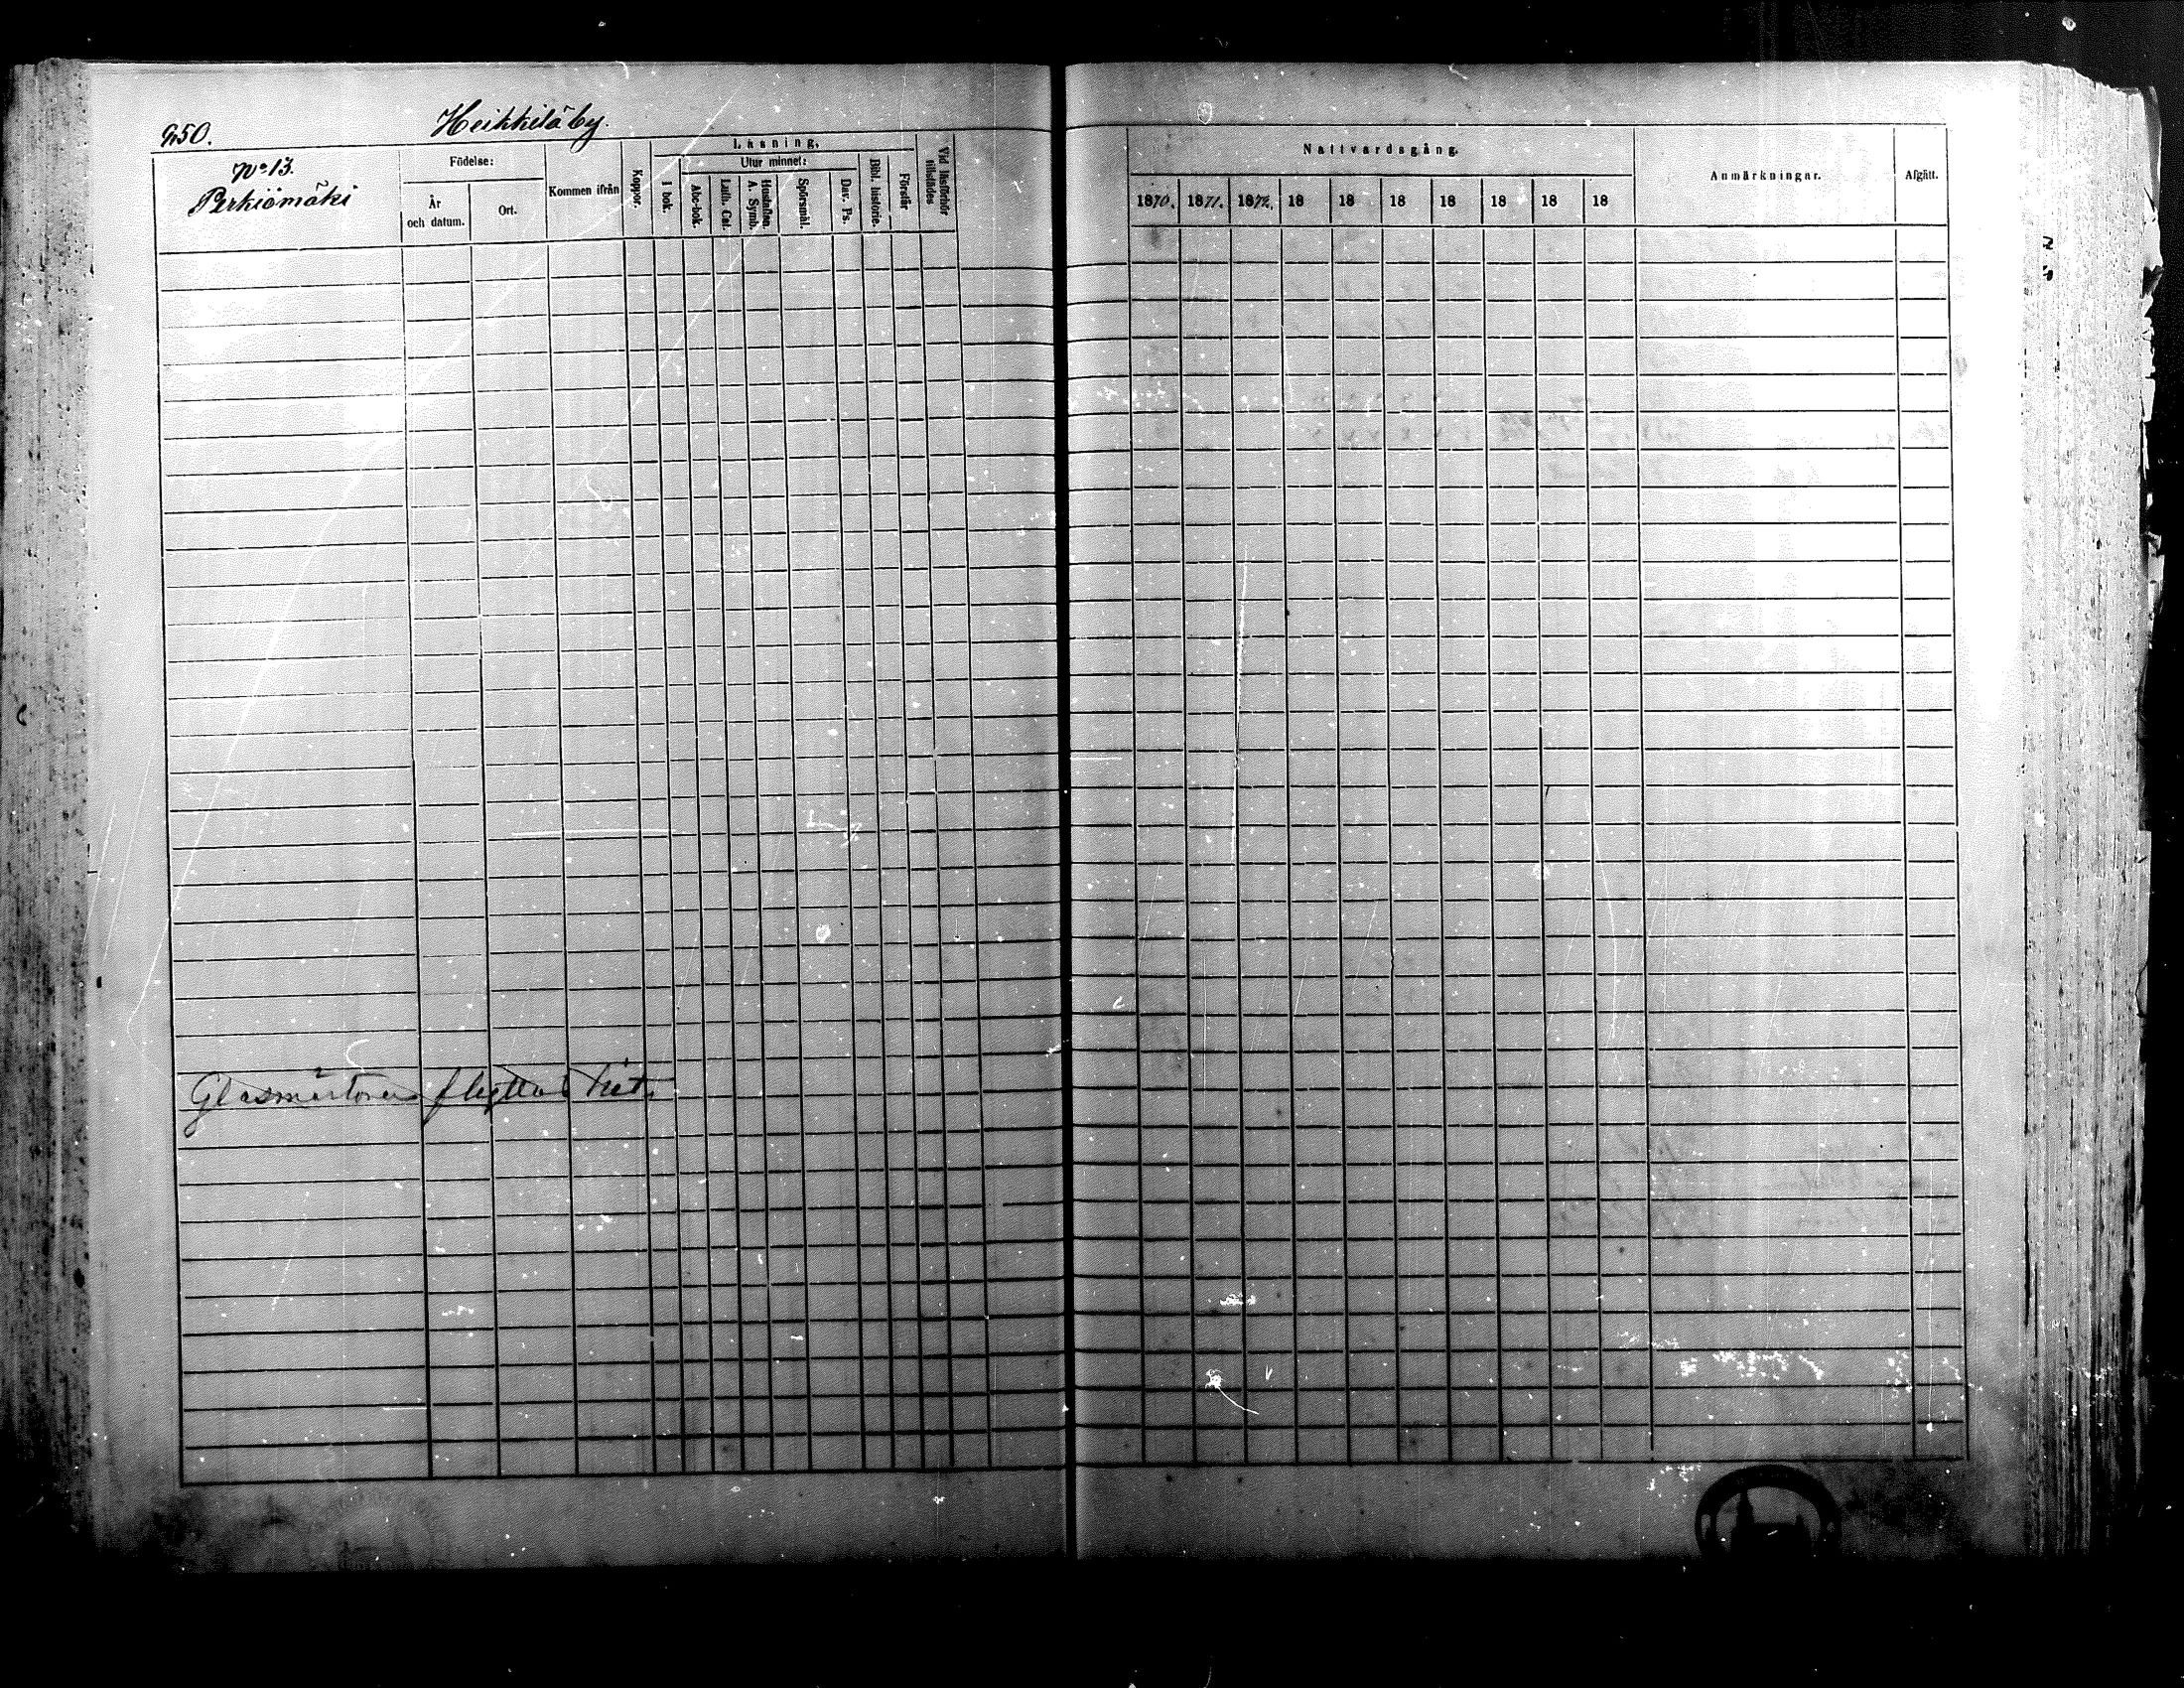 250.
Heikkilä by.
No 13.
Perkiömäki
Födelse:
År
och datum.
Ort.
Kommen ifrån
Koppor.
Läsning.
I bok.
Utur minnet:
Abc-bok.
Luth. Cat.
Hustaflan.
A. Symb.
Spörsmål.
Dav. Ps.
Bibl. historie.
Förstår
Vid läsförhör
tillstädes
Nattvardsgång.
1870. 1871. 1872. 18 18 18 18 18 18 18
Anmärkningar.
Afgått.
flyttat hit